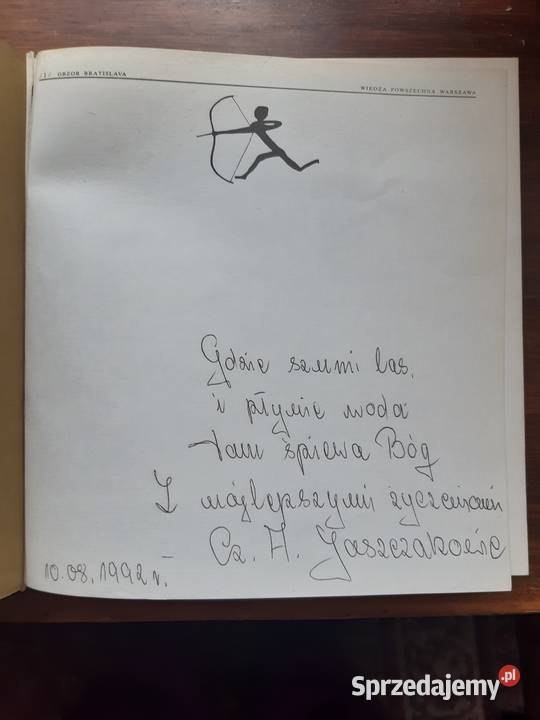 OBZOR BRATISLAVA
WIEDZA POWSZECHNA WARSZAWA
Gdzie szumi las,
i płynie woda
tam śpiewa Bóg
Z najlepszymi życzeniami
Cz. A. Jaszczakowie
10.08.1992 r.
Sprzedajemy.pl